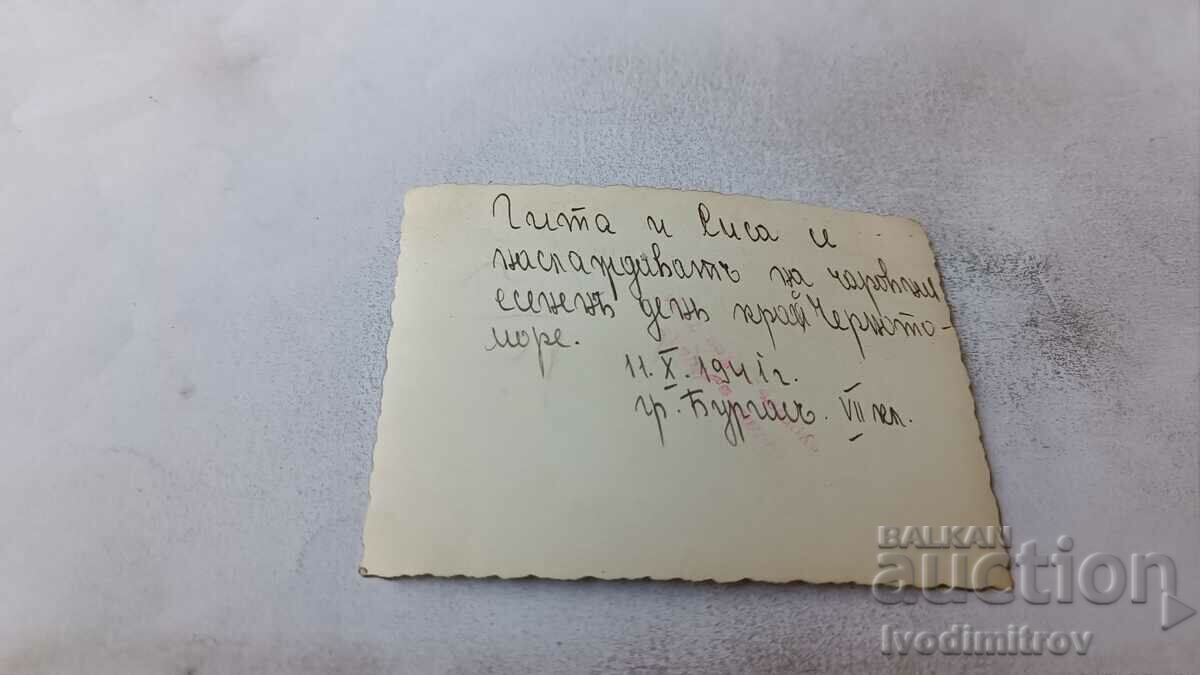 Гита и Лиса и
наслаждаватъ на чаровния
есененъ день край Черното-
море.
11. X. 1941 г.
гр. Бургасъ. VII кл.
BALKAN
auction
Ivodimitrov